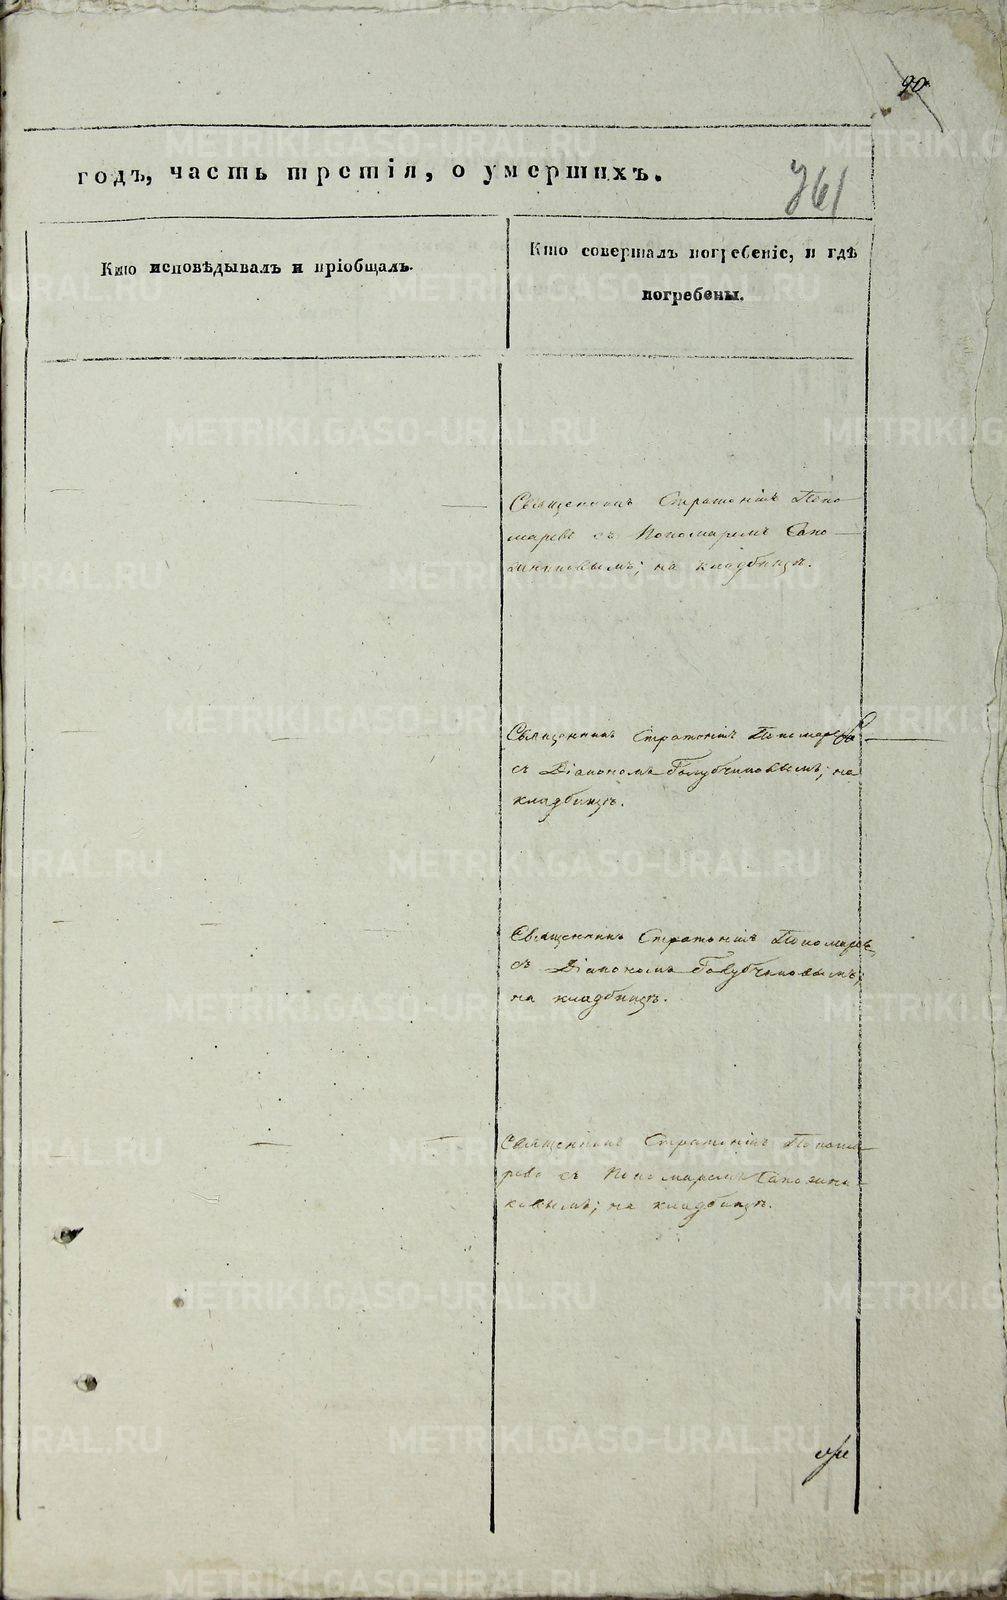 90
годъ, часть третія, о умершихъ.
761
Кто исповѣдывалъ и пріобщалъ.
Кто совершалъ погребеніе, и гдѣ
погребены.
Священникъ Стратоникъ Поно
маревъ съ Пономаремъ Сапо
жниковымъ; на кладбищѣ.
Священникъ Стратоникъ Пономаревъ
съ Діакономъ Голубчиковымъ; на
кладбищѣ.
Священникъ Стратоникъ Пономаревъ
съ Діакономъ Голубчиковымъ;
на кладбищѣ.
Священникъ Стратоникъ Понома
ревъ съ Пономаремъ Сапожни
ковымъ; на кладбищѣ.
METRIKI.GASO-URAL.RU